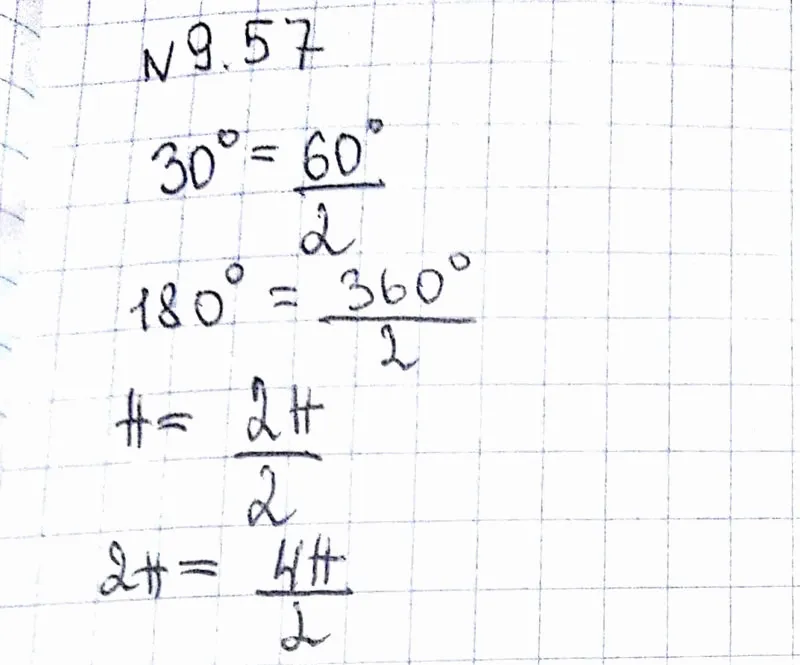 № 9.57
30° = 60°/2
180° = 360°/2
π = 2π/2
2π = 4π/2